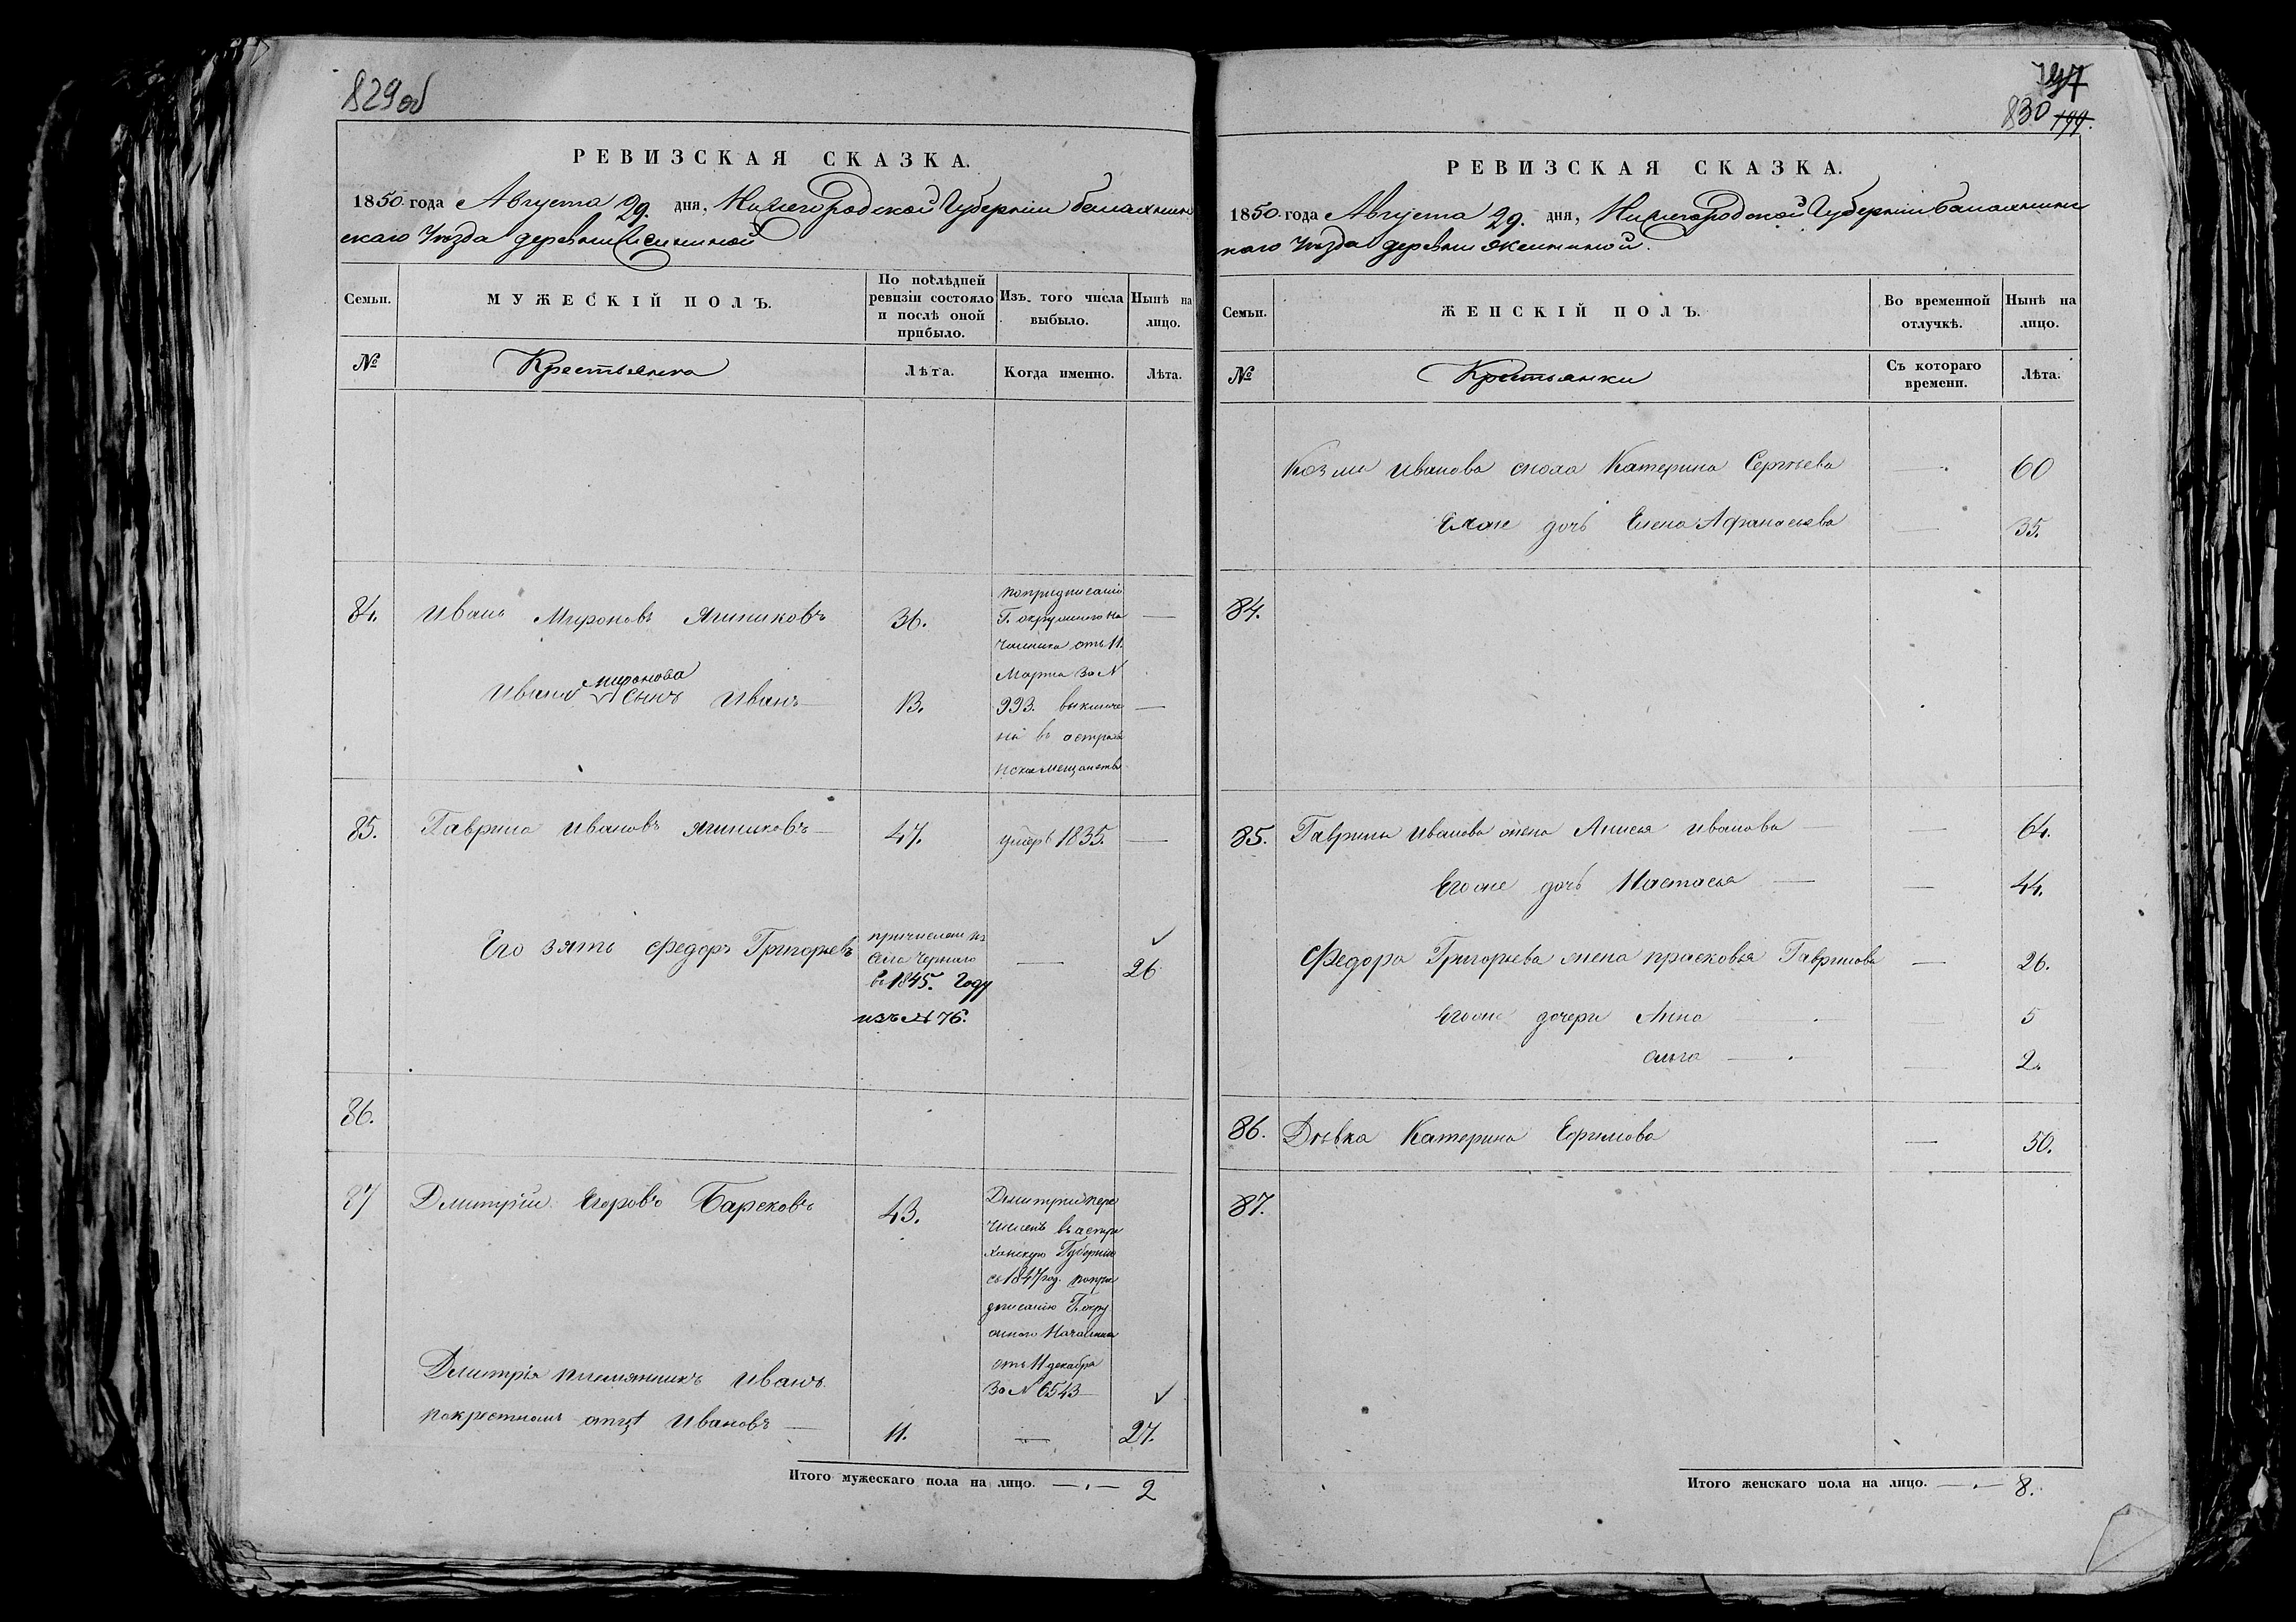 829об
РЕВИЗСКАЯ СКАЗКА.
1850 года Августа 29. дня, Нижегородской Губернии балахнин
скаго Уезда деревни
Семьи.
МУЖЕСКІЙ ПОЛЪ.
По послѣдней ревизіи состояло и послѣ оной прибыло.
Изъ того числа выбыло.
Нынѣ на лицо.
№
Крестьяна
Лѣта.
Когда именно.
Лѣта.
84.
Иванъ Мироновъ
36.
попредписанію
Г. окружнаго На
чальника отъ 11.
Марта За №
миронова
Ивана сынъ Иванъ
13.
993. выключе
ны въ астрах
нское мещанство
85.
Гаврила Ивановъ
47.
умеръ 1835.
Его зять Федоръ Григорьевъ
причислен из
села Чернаго
въ 1845. Году
изъ № 76.
26
86.
87
Дмитрий Егоровъ Барсковъ
43.
Дмитрий пере
численъ въ астра
ханскую Губернию
съ 1847 год. попре
дписанію Г. окру
жнаго Начальника
отъ 11 декабря
За № 6543
Дмитрія племянникъ Иванъ
покрестному отцу Ивановъ
11.
27.
Итого мужескаго пола на лицо. 2
830
199.
РЕВИЗСКАЯ СКАЗКА.
1850 года Августа 29. дня, Нижегородской Губернии балахнинс
каго Уезда деревни
Семьи.
ЖЕНСКІЙ ПОЛЪ.
Во временной отлучкѣ.
Нынѣ на лицо.
№
Крестьянки
Съ котораго времени.
Лѣта.
Козмы Иванова сноха Катерина Сергѣева
60
Ея же дочь Елена Афанасьева
35.
84.
85.
Гаврилы Иванова жена Анисья Иванова
64.
Его же дочь Настасья
44.
Федора Григорьева жена прасковья Гаврилова
26.
Его же дочери Анна
5
Ольга
2.
86.
Дѣвка Катерина Ефимова
50.
87.
Итого женскаго пола на лицо. 8.